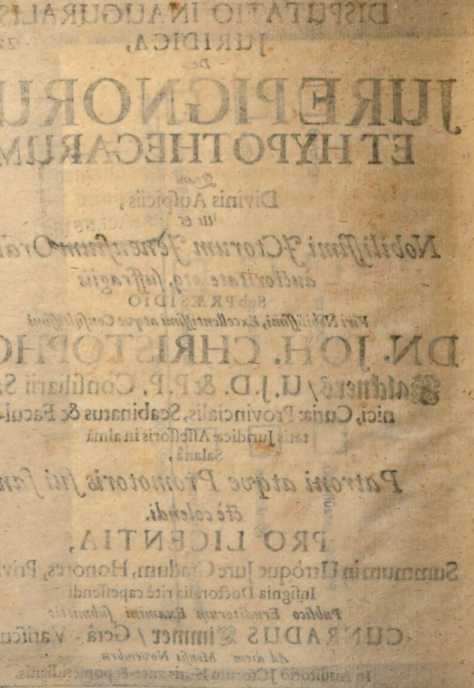 DISPUTATIO INAUGURALIS
JURIDICA,
DE
JURE PIGNORU
ET HYPOTHECARUM
Quam
Divinis Auspiciis,
Nobilissimi JCtorum Jenensium Ordi
auctoritate atq; suffragiis
Sub PRÆSIDIO
Viri Nobilissimi, Excellentissimi atque Consultissimi
DN. JOH. CHRISTOPHO
Faldners/ U.J.D. & P.P. Consiliarii S
nici, Curiæ Provincialis, Scabinatus & Facul-
tatis Juridicæ Assessoris in almâ
Salanâ,
Patroni atqve Promotoris sui san
ctè colendi.
PRO LICENTIA,
Summum in Utròque Jure Gradum, Honores, Privi
Insignia Doctoralia ritè capessendi
Publico Eruditorum Examini submittit
CUNRADUS Zimmer/ Gerâ-Variscus
Ad diem Mensis Novembris
In Auditorio JCtorum